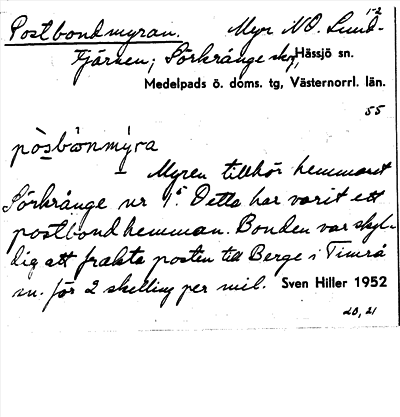 Postbondmyran. Myr NO. Lund- 1-2
tjärnen; Sörkrånge skog, Hässjö sn.
Medelpads ö. doms. tg, Västernorrl. län.
55
pòsbòn̄mýra
Myren tillhör hemmanet
Sörkrånge nr 1⁵. Detta har varit ett
postbondhemman. Bonden var skyl-
dig att frakta posten till Berge i Timrå
sn. för 2 skelling per mil. Sven Hiller 1952
20, 21